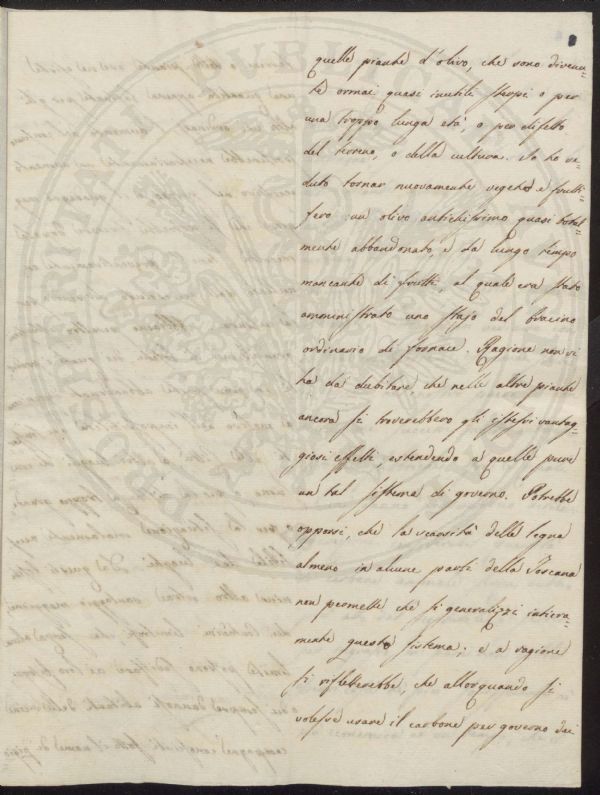 quelle piante d'olivo, che sono divenu=
te ormai quasi inutili sterpi o per
una troppo lunga età, o per difetto
del terreno, o della cultura. Io ho ve=
duto tornar nuovamente vegeto e frutti=
fero un olivo antichissimo quasi total=
mente abbandonato, e da lungo tempo
mancante di frutti, al quale era stato
amministrato uno stajo del bracino
ordinario di fornace. Ragione non vi
ha da dubitare, che nelle altre piante
ancora si troverebbero gli istessi vantag=
giosi effetti, estendendo a quelle pure
un tal sistema di governo. Potrebbe
opporsi, che la scarsità delle legna
almeno in alcune parti della Toscana
non permette che si generalizzi intiera=
mente questo sistema; e a ragione
si rifletterebbe, che allorquando si
volesse usare il carbone per governo dei